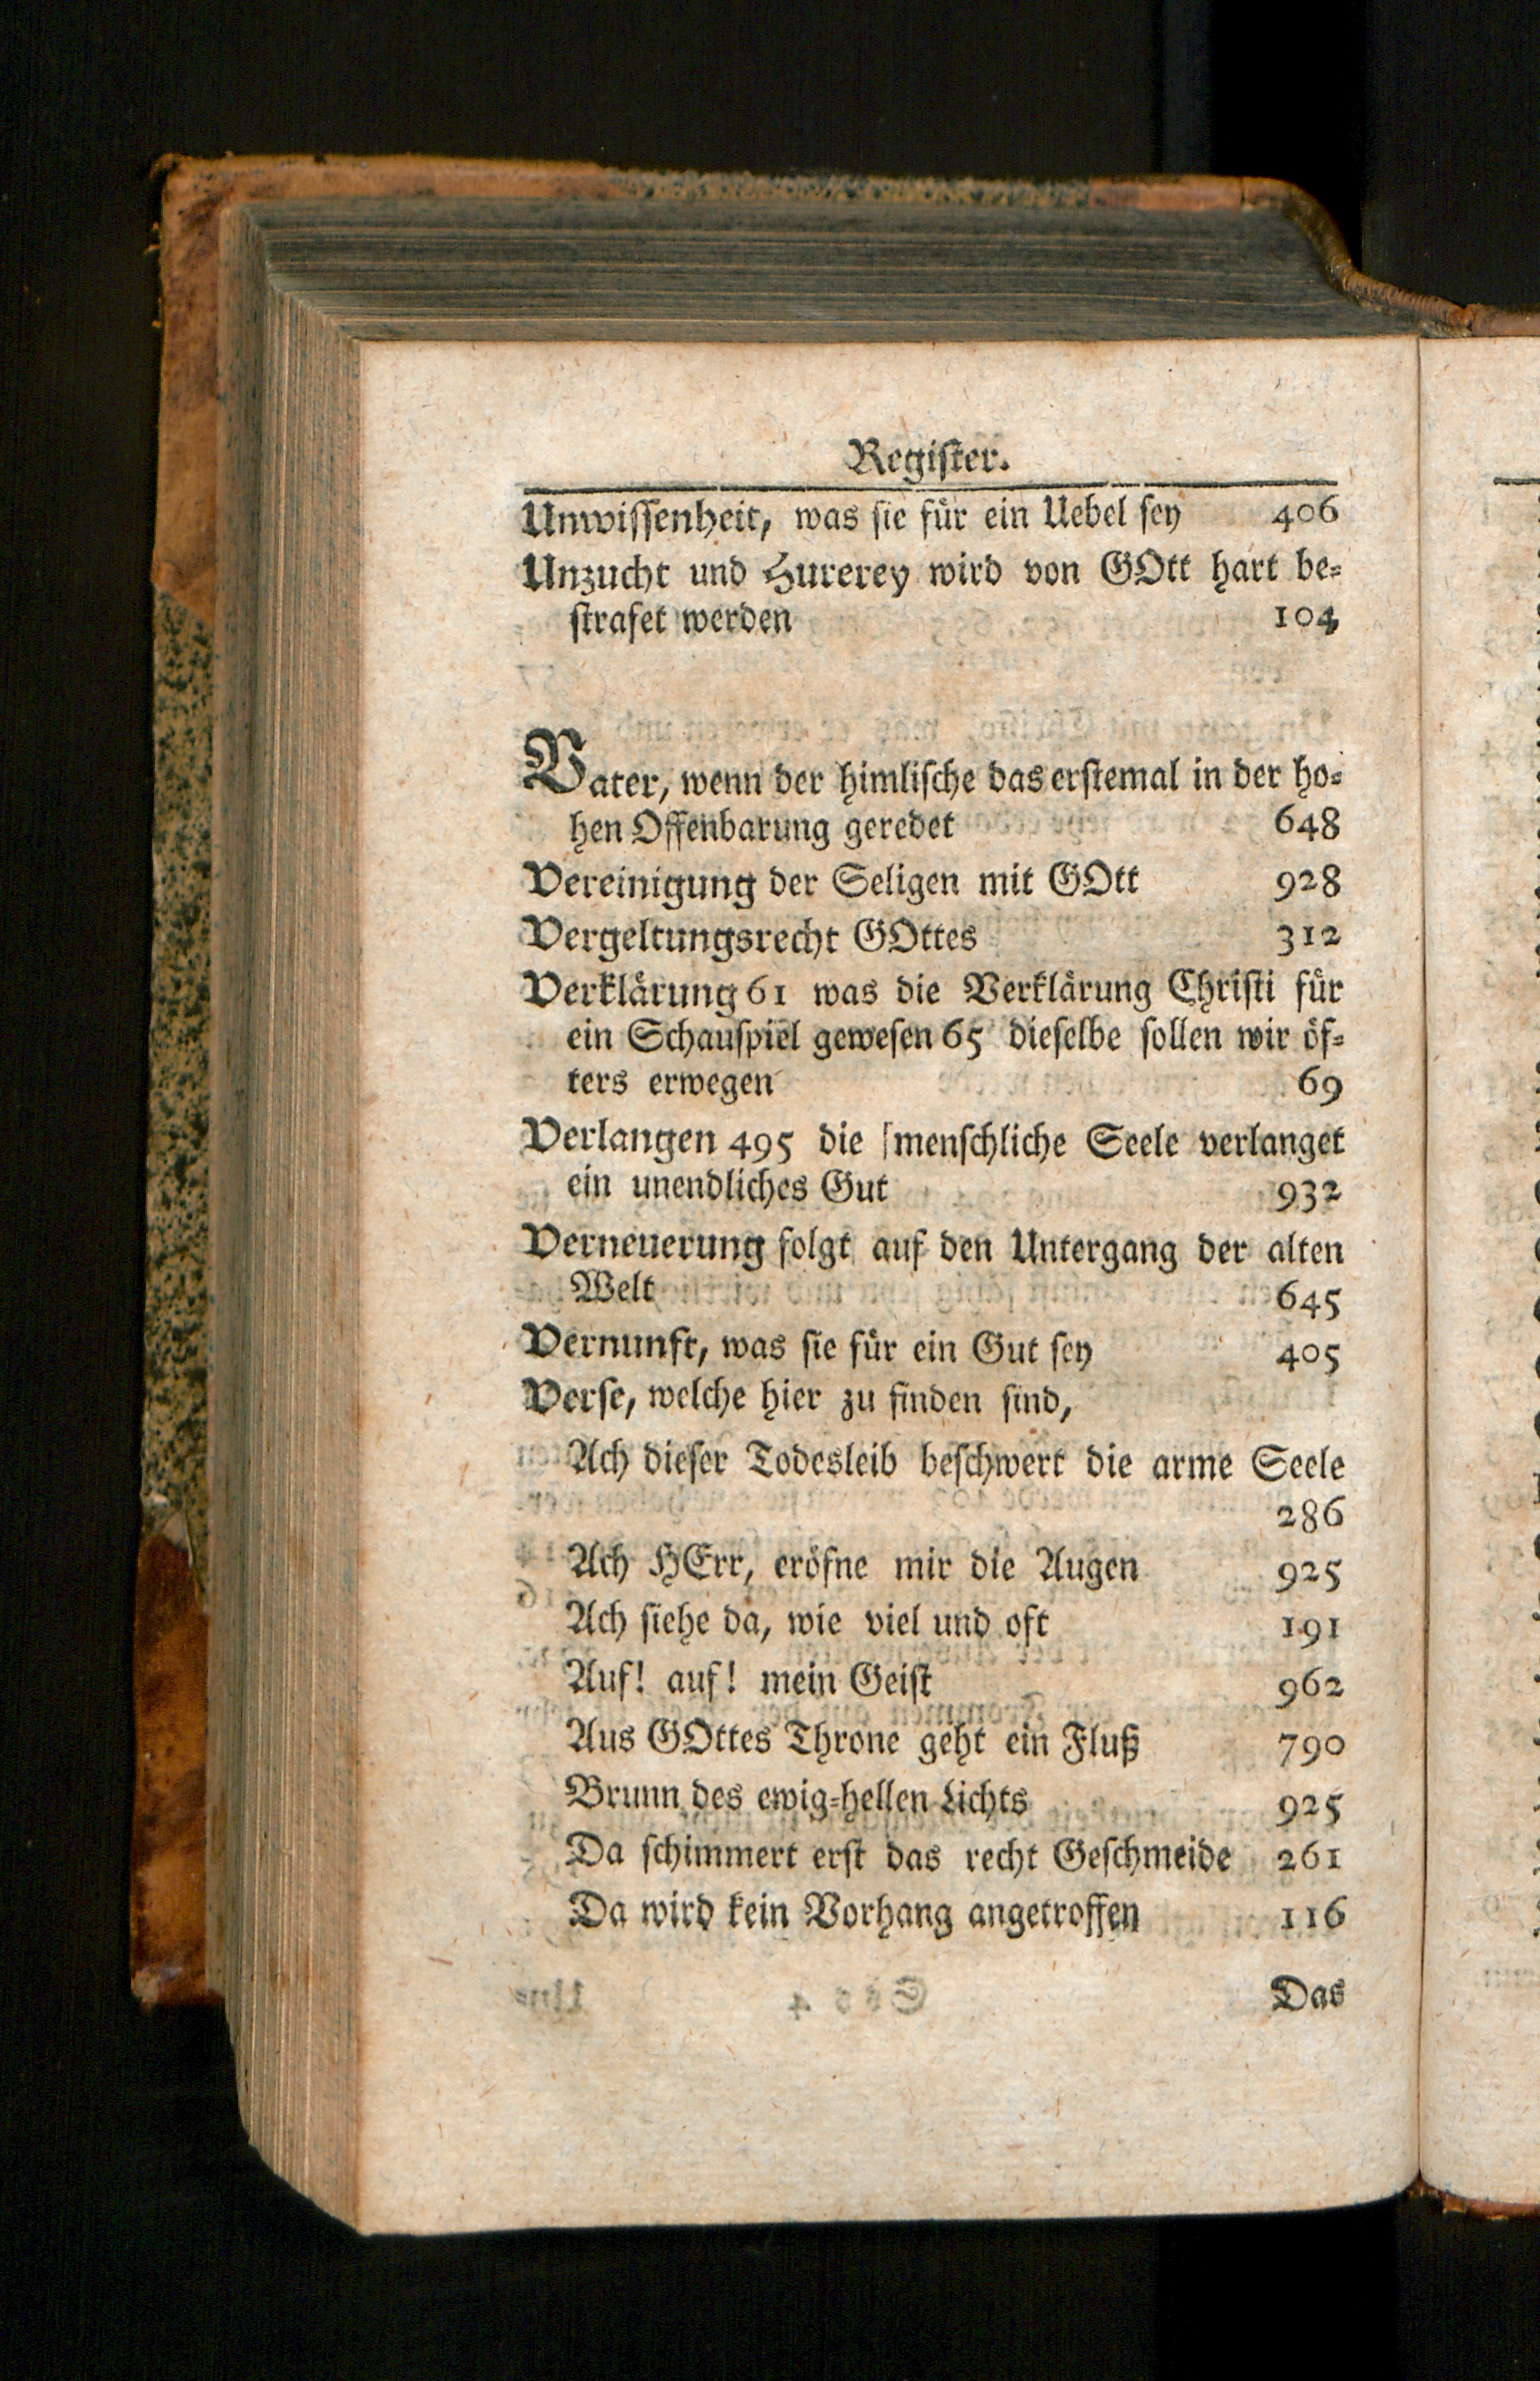 Register.
Unwissenheit, was sie für ein Uebel sey 406
Unzucht und Hurerey wird von GOtt hart be-
strafet werden 104
Vater, wenn der himlische das erstemal in der ho-
hen Offenbarung geredet 648
Vereinigung der Seligen mit GOtt 928
Vergeltungsrecht GOttes 312
Verklärung 61 was die Verklärung Christi für
ein Schauspiel gewesen 65 dieselbe sollen wir öf-
ters erwegen 69
Verlangen 495 die menschliche Seele verlanget
ein unendliches Gut 932
Verneuerung folgt auf den Untergang der alten
Welt 645
Vernunft, was sie für ein Gut sey 405
Verse, welche hier zu finden sind,
Ach dieser Todesleib beschwert die arme Seele
286
Ach HErr, eröfne mir die Augen 925
Ach siehe da, wie viel und oft 191
Auf! auf! mein Geist 962
Aus GOttes Throne geht ein Fluß 790
Brunn des ewig-hellen Lichts 925
Da schimmert erst das recht Geschmeide 261
Da wird kein Vorhang angetroffen 116
Das